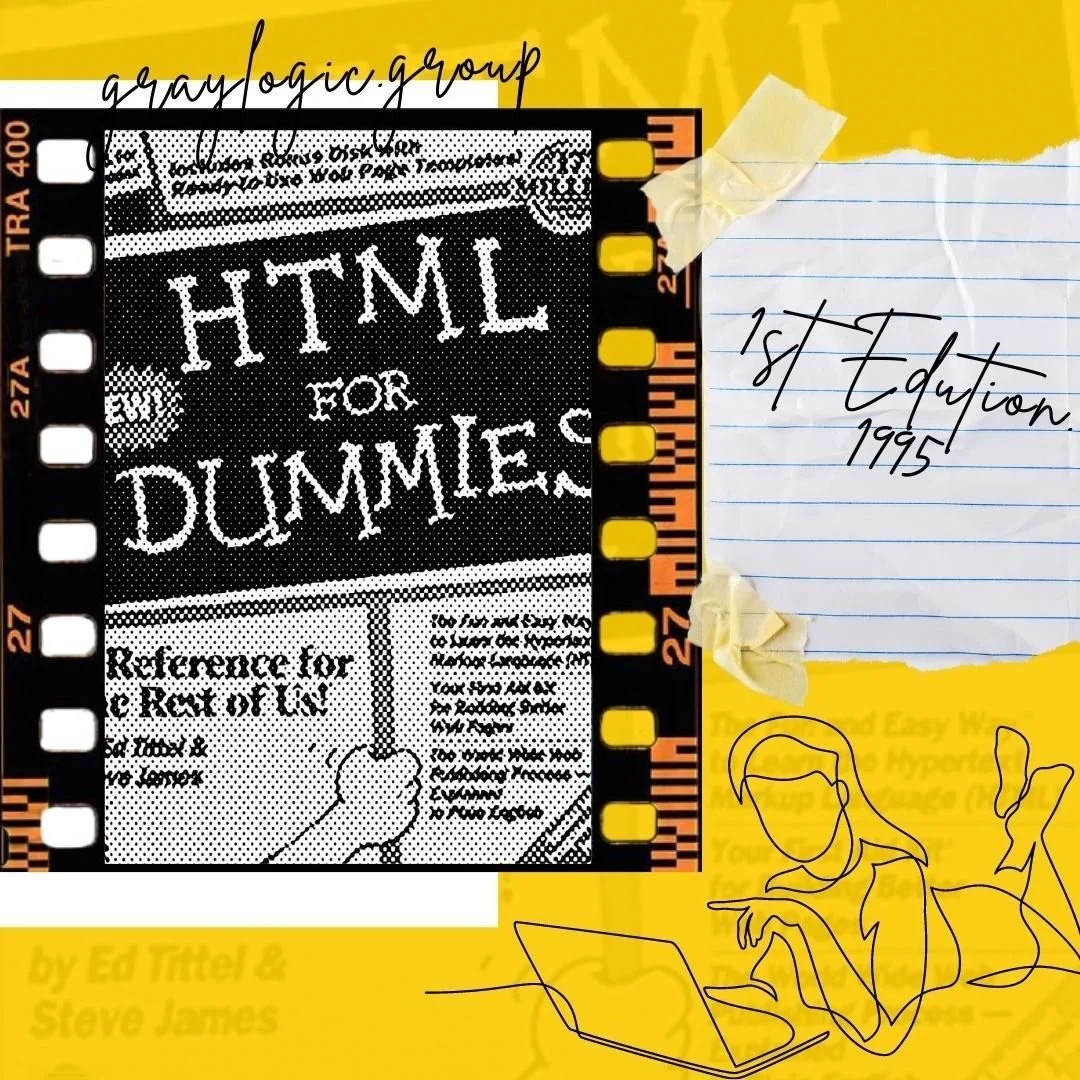 graylogic.group
TRA 400
27A
27
27A
27
Includes Bonus Disk with
Ready-to-Use Web Page Templates!
HTML
FOR
DUMMIES
EW!
Reference for
e Rest of Us!
Ed Tittel &
ve James
The Fun and Easy Way
to Learn the Hypertext
Markup Language (HT
Your First Aid Kit
for Building Better
Web Pages
The World Wide Web
Publishing Process —
Explained
in Plain English
1st Edution.
1995
The Fun and Easy Way
to Learn the Hypertext
Markup Language (HTML)
Your First Aid Kit
for Building Better
Web Pages
The World Wide Web
Publishing Process —
Explained
by Ed Tittel &
Steve James